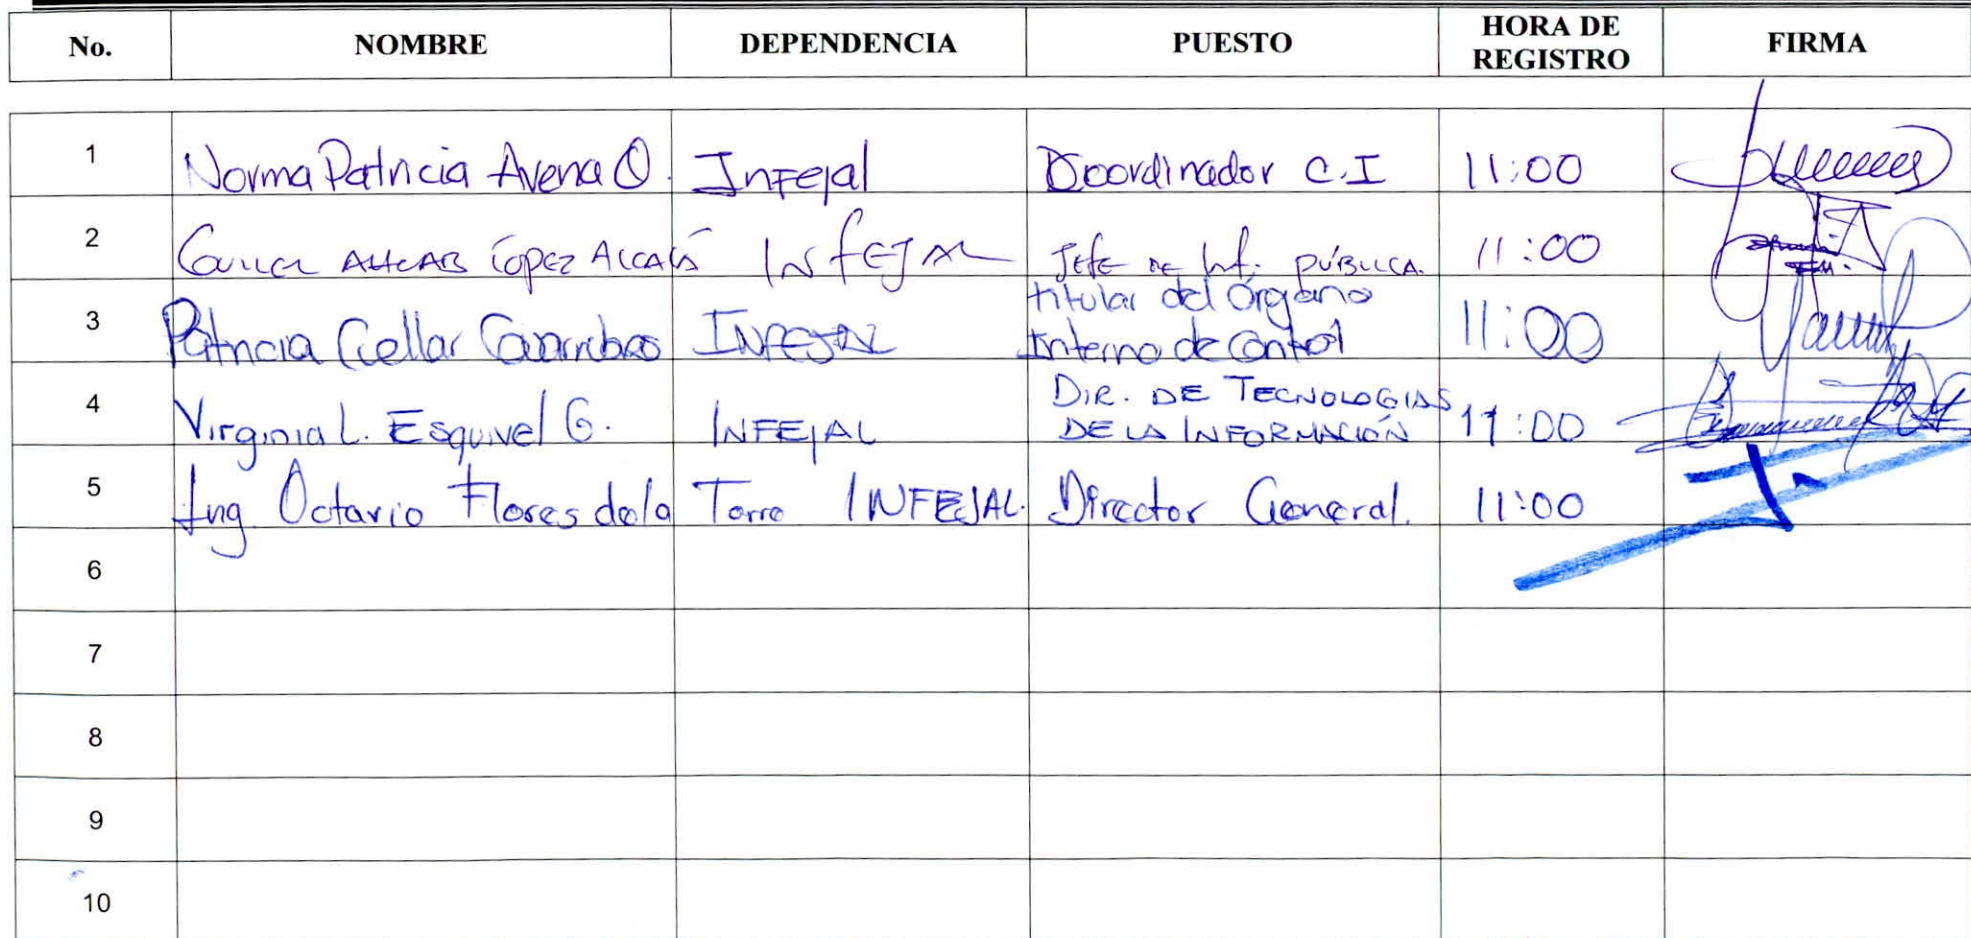 No. NOMBRE DEPENDENCIA PUESTO HORA DE REGISTRO FIRMA
1 Norma Patricia Avena O. Infejal Coordinador C.I 11:00
2 López Alcalá INFEJAL Jefe de Inf. PÚBLICA. 11:00
3 Patricia Cuellar Covarrubias INFEJAL titular del Órgano Interno de Control 11:00
4 Virginia L. Esquivel G. INFEJAL DIR. DE TECNOLOGIAS DE LA INFORMACIÓN 11:00
5 Ing. Octavio Flores de la Torre INFEJAL. Director General. 11:00
6
7
8
9
10